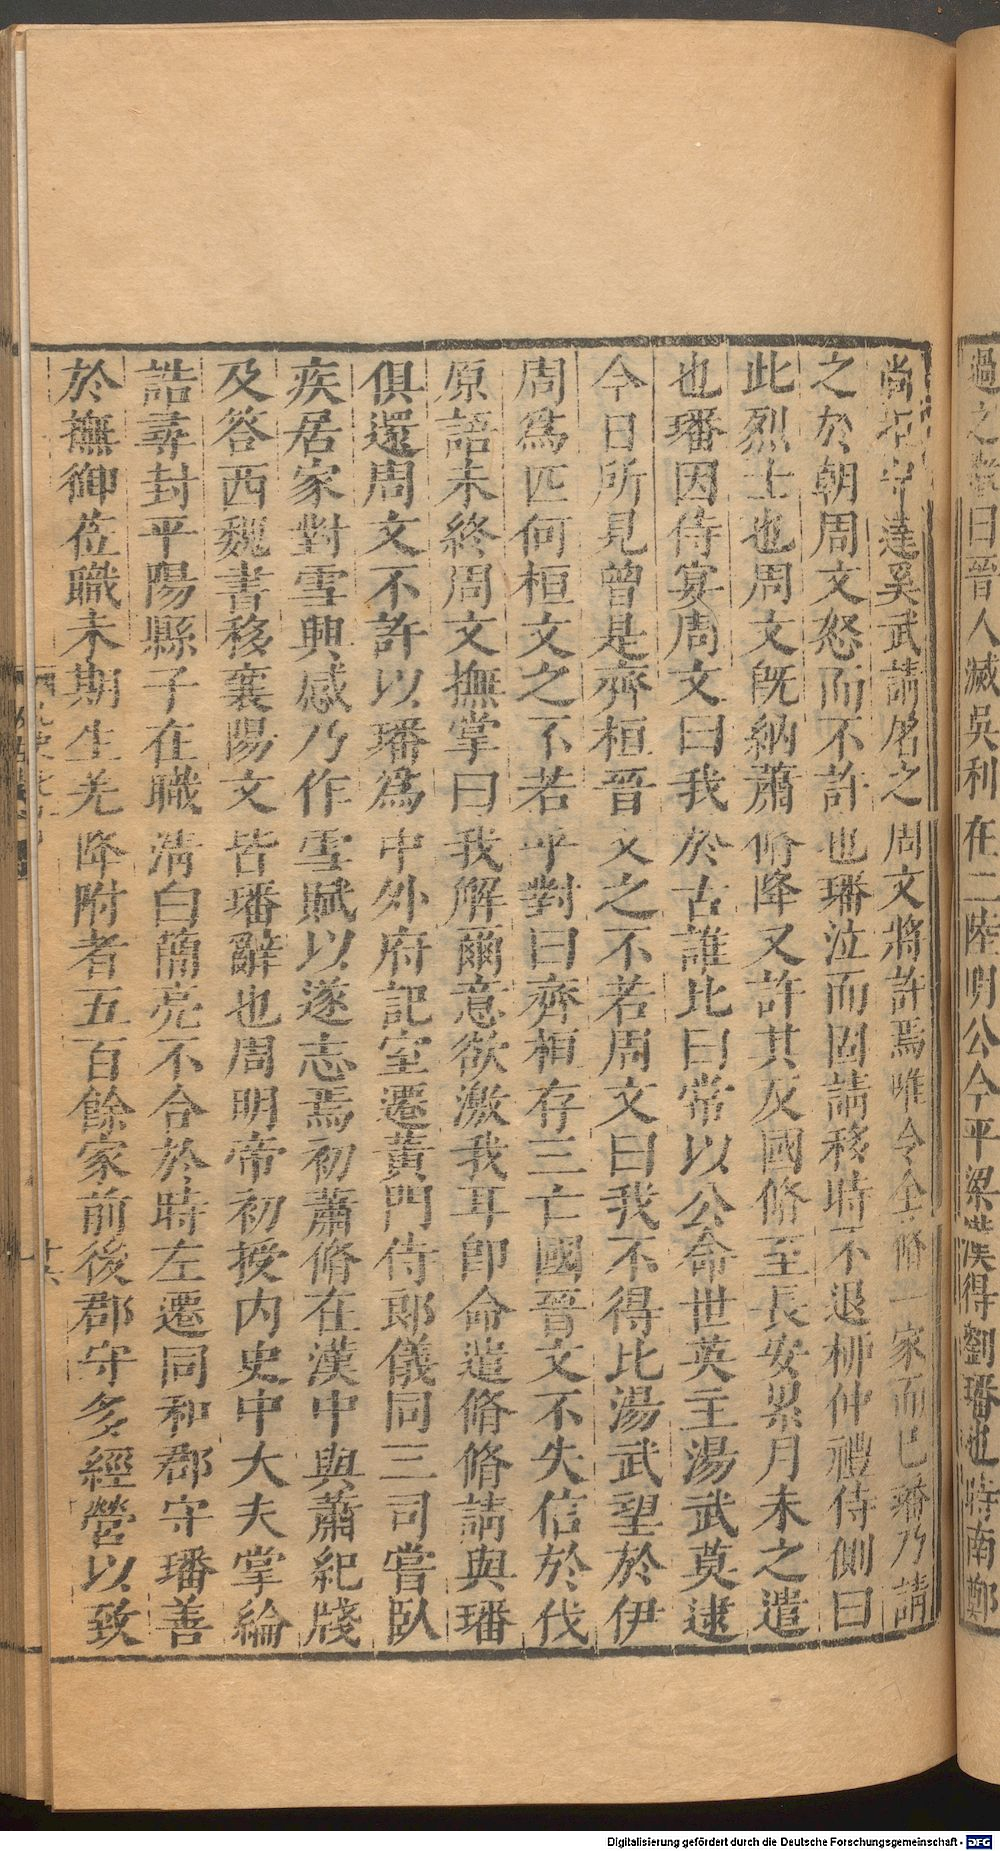 過之 曰晉人滅吳利在二陸明公今平梁漢得劉璠也時南鄭
尚拒守達奚武請屠之周文將許焉唯令全脩一家而巳璠乃請
之於朝周文怒而不許也璠泣而固請移時不退栁仲禮侍側曰
此烈士也周文旣納蕭脩降又許其反國脩至長安累月未之遣
也璠因侍宴周文曰我於古誰比曰常以公命世英主湯武莫逮
今日所見曾是齊桓晉文之不若周文曰我不得比湯武望於伊
周爲匹何桓文之不若乎對曰齊桓存三亡國晉文不失信於伐
原語未終周文撫掌曰我解爾意欲激我耳即命遣脩脩請與璠
俱還周文不許以璠爲中外府記室遷黃門侍郎儀同三司嘗臥
疾居家對雪興感乃作雪賦以遂志焉初蕭脩在漢中與蕭紀牋
及答西魏書移襄陽文皆璠辭也周明帝初授内史中大夫掌綸
誥尋封平陽縣子在職淸白𥳑亮不合於時左遷同和郡守璠善
於撫御莅職未期生羌降附者五百餘家前後郡守多經營以致
廿六
Digitalisierung gefördert durch die Deutsche Forschungsgemeinschaft - DFG